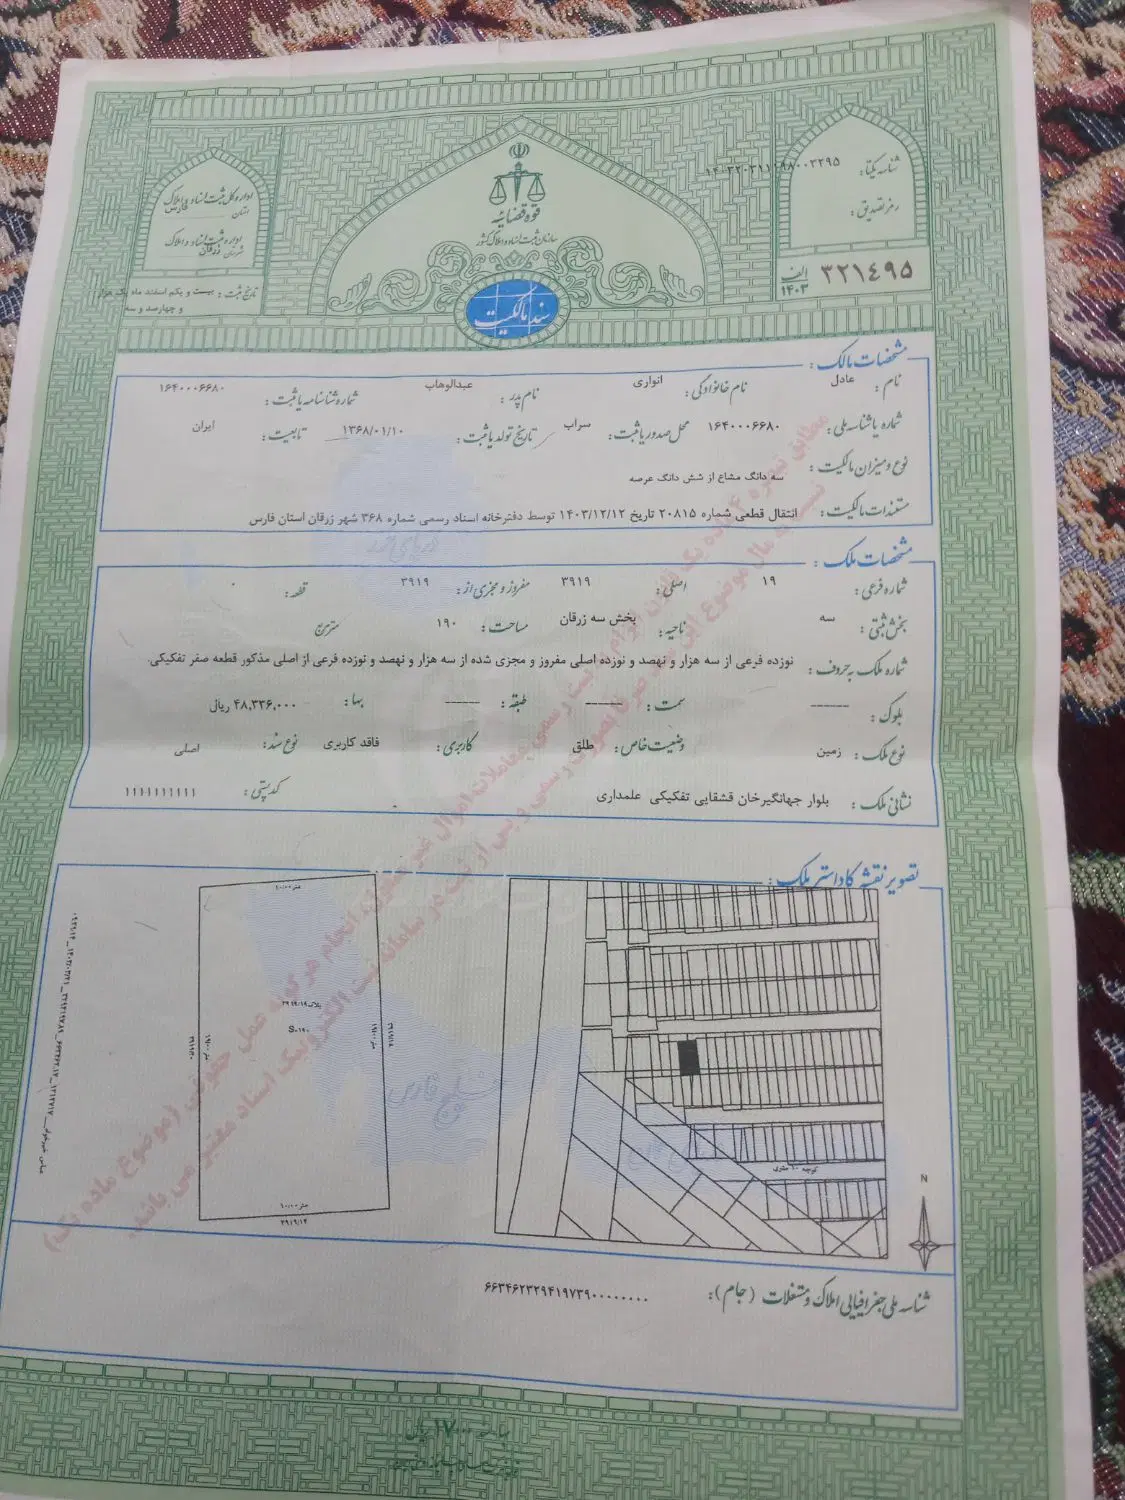 قوه قضائیه
سازمان ثبت اسناد و املاک کشور
سند مالکیت
اداره کل ثبت اسناد و املاک
استان فارس
اداره ثبت اسناد و املاک
شهرستان زرقان
تاریخ ثبت: بیست و یکم اسفند ماه یک هزار
و چهارصد و سه
شناسه یکتا:
رمز تصدیق:
۳۲۱۴۹۵ الف ۱۴۰۳
مشخصات مالک:
نام: عادل نام خانوادگی: انواری نام پدر: عبدالوهاب شماره شناسنامه یا ثبت: ۱۶۴۰۰۰۶۶۸۰
شماره یا شناسه ملی: ۱۶۴۰۰۰۶۶۸۰ محل صدور یا ثبت: سراب تاریخ تولد یا ثبت: ۱۳۶۸/۰۱/۱۰ تابعیت: ایران
نوع و میزان مالکیت: سه دانگ مشاع از شش دانگ عرصه
مستندات مالکیت: انتقال قطعی شماره ۲۰۸۱۵ تاریخ ۱۴۰۳/۱۲/۱۲ توسط دفترخانه اسناد رسمی شماره ۳۶۸ شهر زرقان استان فارس
مشخصات ملک:
شماره فرعی: ۱۹ اصلی: ۳۹۱۹ مفروز و مجزی از: ۳۹۱۹ قطعه: ۰
بخش ثبتی: سه ناحیه: بخش سه زرقان مساحت: ۱۹۰ مترمربع
شماره ملک به حروف: نوزده فرعی از سه هزار و نهصد و نوزده اصلی مفروز و مجزی شده از سه هزار و نهصد و نوزده فرعی از اصلی مذکور قطعه صفر تفکیکی.
بلوک: ------ سمت: ------ طبقه: ------ بها: ۴۸,۳۳۶,۰۰۰ ریال
نوع ملک: زمین وضعیت خاص: طلق کاربری: فاقد کاربری نوع سند: اصلی
نشانی ملک: بلوار جهانگیرخان قشقایی تفکیکی علمداری کد پستی: ۱۱۱۱۱۱۱۱۱۱
تصویر نقشه کاداستر ملک:
۱۰/۰۰ متر
پلاک ۳۹۱۹/۱۹
S=۱۹۰
۱۹/۰۰ متر
۱۹/۰۰ متر
۱۰/۰۰ متر
۳۹۱۹/۱۴
کوچه ۱۰ متری
N
خلیج فارس
شناسه ملی جغرافیایی املاک و مستغلات (جام): ۶۶۳۴۶۲۳۲۹۴۱۹۷۳۹۰۰۰۰۰۰۰۰